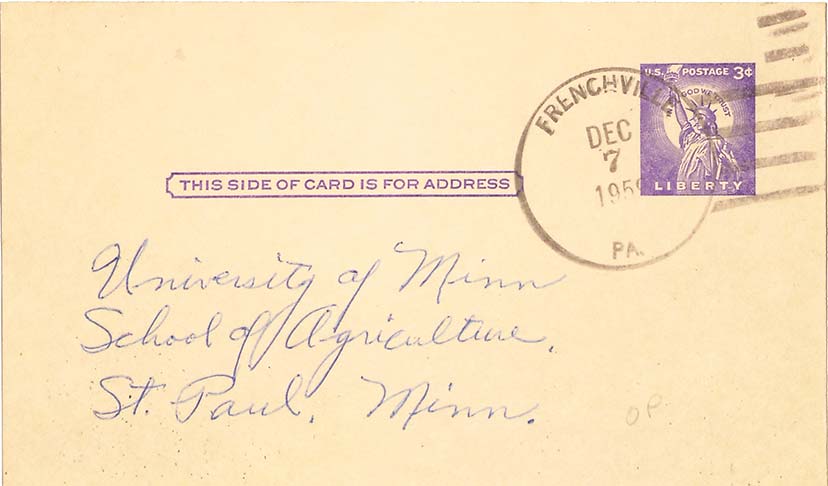 U.S. POSTAGE 3¢
IN GOD WE TRUST
LIBERTY
FRENCHVILLE
DEC
7
1959
PA.
THIS SIDE OF CARD IS FOR ADDRESS
University of Minn
School of Agriculture,
St. Paul, Minn.
OP